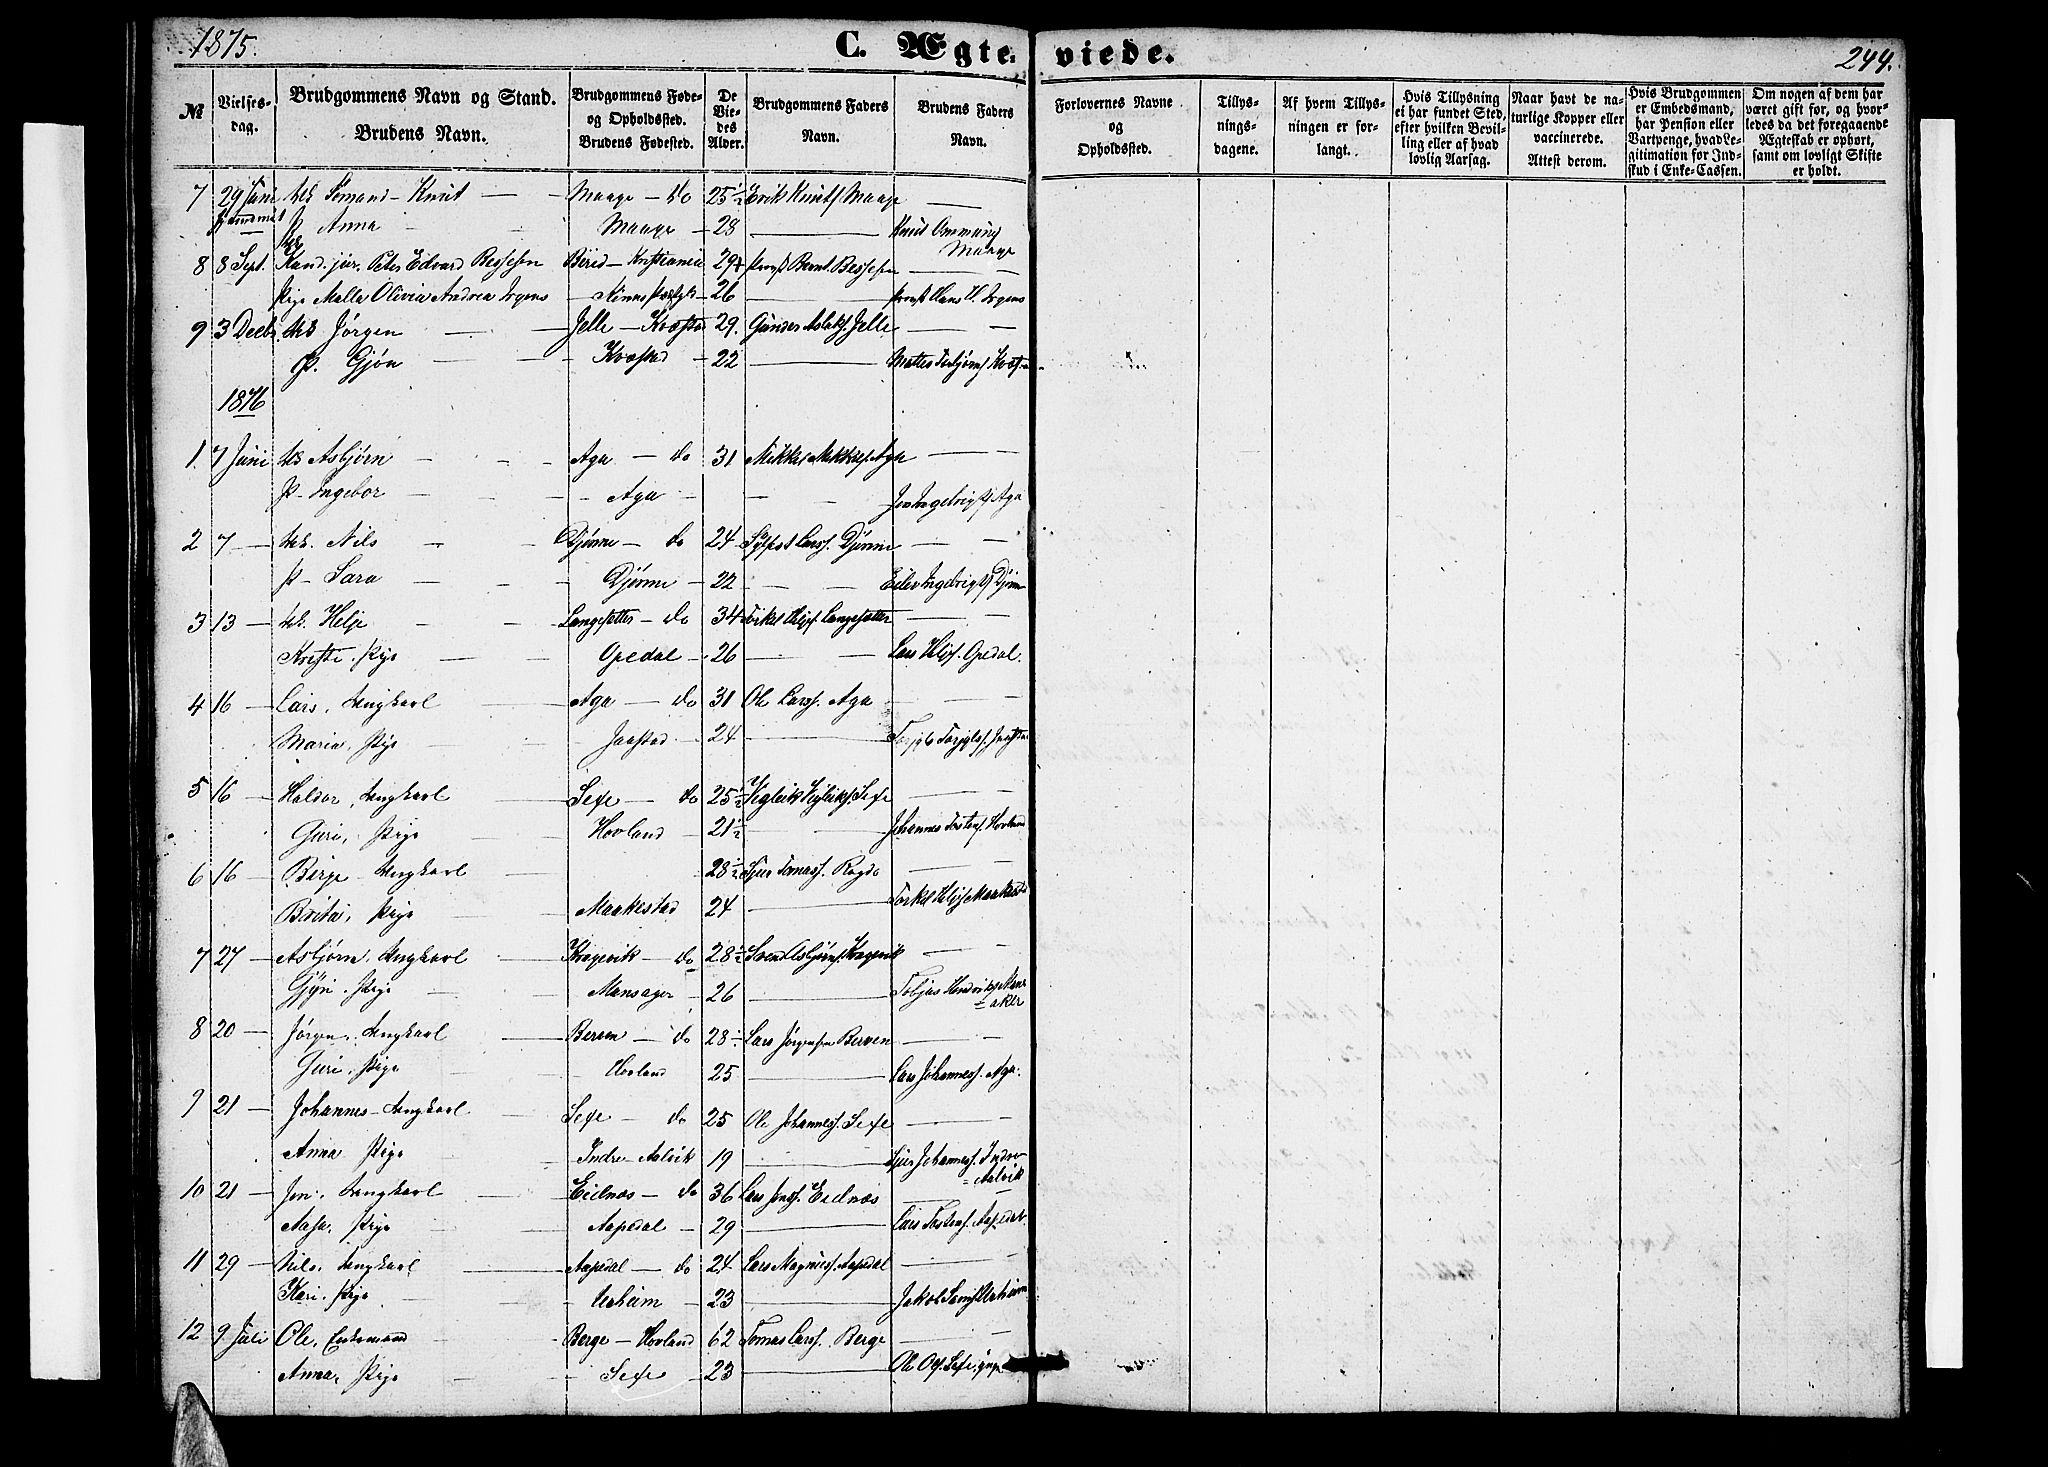 1875.
C. Ægte-
viede.
244.
No
Vielses-
dag.
Brudgommens Navn og Stand.
Brudens Navn.
Brudgommens Føde-
og Opholdssted.
Brudens Fødested.
De
Vie-
des
Alder.
Brudgommens Faders
Navn.
Brudens Faders
Navn.
Forlovernes Navne
og
Opholdssted.
Tillys-
nings-
dagene.
Af hvem Tillys-
ningen er for-
langt.
Hvis Tillysning
ei har fundet Sted,
efter hvilken Bevil-
ling eller af hvad
lovlig Aarsag.
Naar havt de na-
turlige Kopper eller
vaccinerede.
Attest derom.
Hvis Brudgommen
er Embedsmand,
har Pension eller
Vartpenge, hvad Le-
gitimation for Ind-
skud i Enke-Cassen.
Om nogen af dem har
været gift før, og hvor-
ledes da det foregaaende
Ægteskab er ophørt,
samt om lovligt Skifte
er holdt.
7 29 Juni Sømand - Knut — Maage — do 25½ Erik Knuts Maage —
P Anna - Maage — 28 — Knud Ommuns Maage
8 8 Sept. Kand. jur. Peter Edvard Bessesen — Kristiania 29 Provst Bernt Bessesen —
Pige Malla Olivia Andrea Irgens — Kinns Præstgjeld — 26 — Provst Hans H. Irgens
9 3 Decbr Uk Jørgen — Jelle — Kvæstad 29. Gunder Aslaks. Jelle —
P. Gjøa — Kvestad — 22 — Torbjørns
1876
1. 7 Juni Uk Asbjørn — Aga — do 31 Mikkel Mikkels. Aga —
P - Ingebor — Aga — Jon Ingebrigts Aga
2 7 — Uk. Nils — Djønne — do 24 Lars. Djønne —
P - Sara — Djønne — 22 — Eilev Ingebrigts Djønne
3 13 — Uk. Helje — Langesetter — do 34 Torkel Heljes Langesetter —
Kristi. Pige — Opedal — 26 — Lars Heljes. Opedal.
4 16 — Lars, Ungkarl — Aga — do 31 Ole Larss. Aga —
Maria, Pige — Jaastad — 24 —
5 16 — Haldor, Ungkarl — Sexe — do 25½ Vigleik Vigleiks. Sexe —
Guri, Pige — Hovland — 21½ — Johannes Torstens. Hovland
6 16 — Børge Ungkarl 28½ Sjur Tomass. Ragde —
Brita, Pige — Maakestad 24 — Torkel Heljes Maakestad
7 27 — Asbjørn, Ungkarl — Kragevik — do 28½ Svend Asbjørns. Kragevik —
Gyri. Pige — Mansager — 26 — Tobjas Mans
= aker
8 20 — Jørgen, Ungkarl — Berven — do 28½ Lars Jørgensen Berven —
Guri, Pige — Hovland 25 — Lars Johanness. Aga.
9 21 — Johannes - Ungkarl — Sexe — do 25 Ole Johanness. Sexe —
Anna Pige — Indre Aalvik 19 — Sjur Johanness. Indre
= Aalvik
10 21 — Jon, Ungkarl — Eidnæs — do 36 Lars Jonss. Eidnæs —
Aasa, Pige — Aapedal — 29 — Lars Tostens. Aapedal.
11 29 — Nils, Ungkarl — Aapedal — do 24 Lars Magness. Aapedal —
Kari, Pige — Urheim — 23 — Jakob Urheim
12 9 Juli Ole, Enkemand — Berge — Hovland 62 Tomas Larss. Berge —
Anna, Pige — Sexe — 23 — Ole Ols. Sexe,